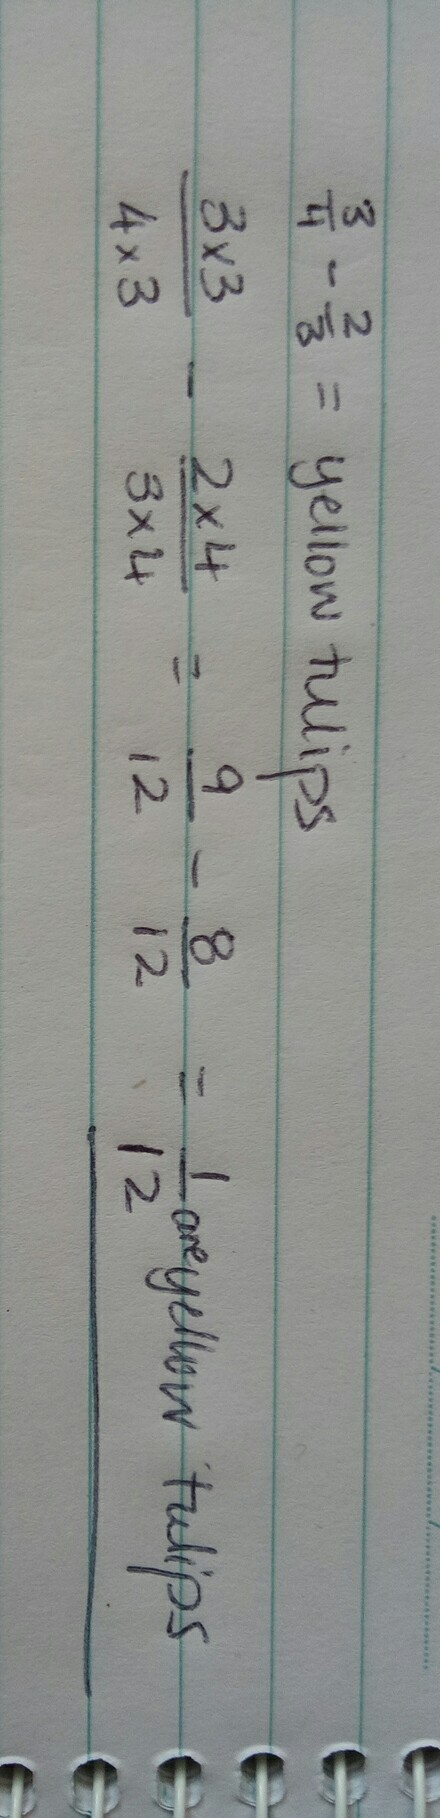 3/4 - 2/3 = yellow tulips
3x3/4x3 - 2x4/3x4 = 9/12 - 8/12 = 1/12 are yellow tulips